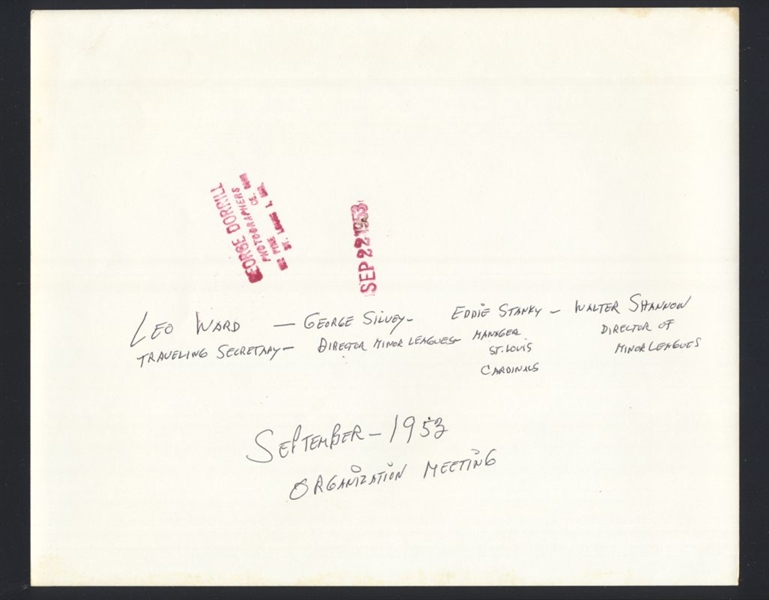 GEORGE DORRILL
PHOTOGRAPHERS
ST. LOUIS 1, MO.
SEP 22 1953
LEO WARD — GEORGE SILVEY— EDDIE STANKY — WALTER SHANNON
TRAVELING SECRETARY— DIRECTOR MINOR LEAGUES— MANAGER DIRECTOR OF
ST. LOUIS MINOR LEAGUES
CARDINALS
SEPTEMBER — 1953
ORGANIZATION MEETING